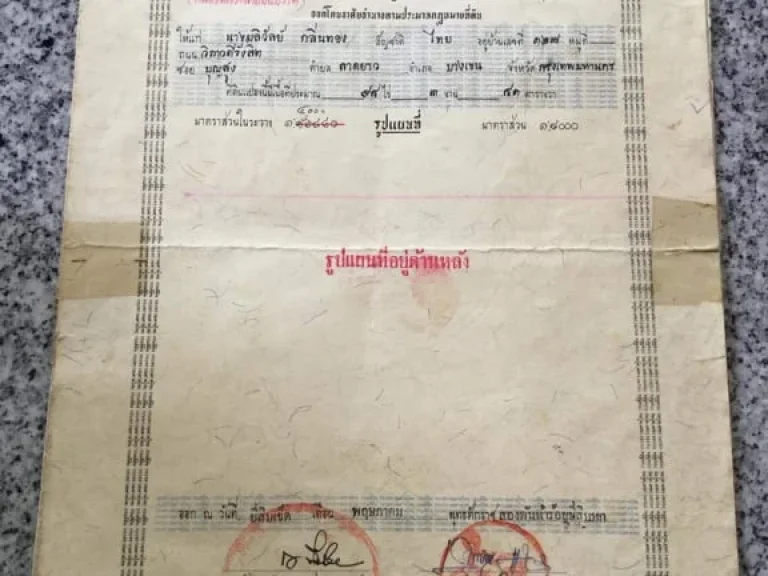 ออกโดยอาศัยอำนาจตามประมวลกฎหมายที่ดิน
ให้แก่ นางมลิวัลย์ กลิ่นทอง สัญชาติ ไทย อยู่บ้านเลขที่ ๑๒๗ หมู่ที่
ถนน วิภาวดีรังสิต
ซอย บุญสูง ตำบล ลาดยาว อำเภอ บางเขน จังหวัด กรุงเทพมหานคร
ที่ดินแปลงนี้มีเนื้อที่ประมาณ ๑๙ ไร่ ๓ งาน ๕๑ ตารางวา
๔๐๐๐
มาตราส่วนในระวาง ๑: รูปแผนที่ มาตราส่วน ๑:๔๐๐๐
รูปแผนที่อยู่ด้านหลัง
ออก ณ วันที่ ยี่สิบเจ็ด เดือน พฤษภาคม พุทธศักราช สองพันห้าร้อย